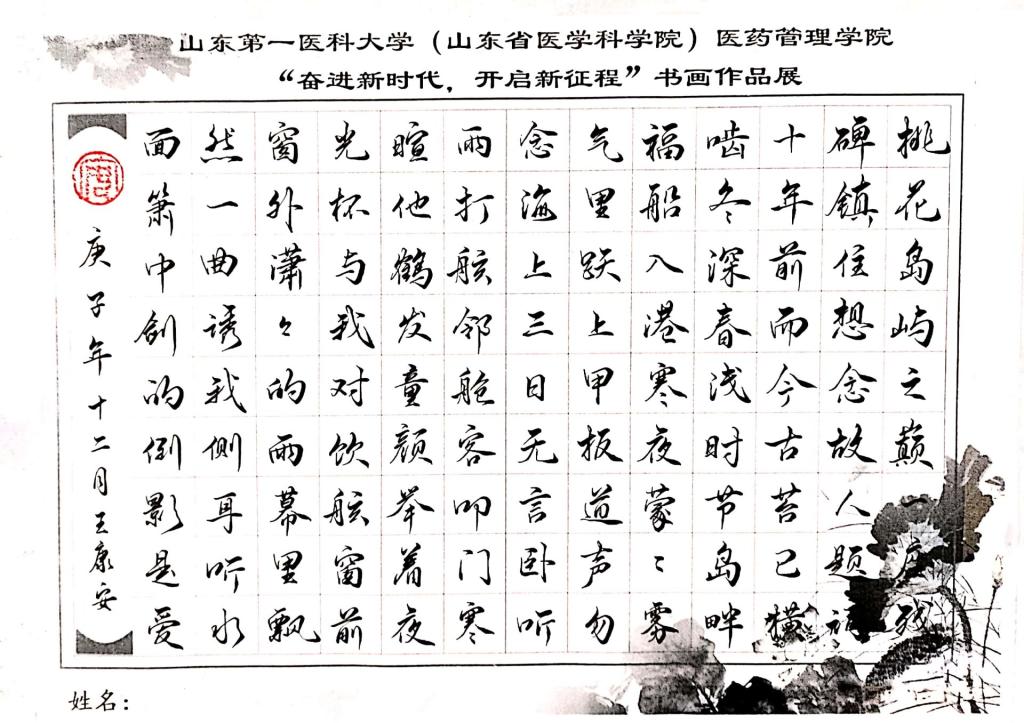 山东第一医科大学（山东省医学科学院）医药管理学院
“奋进新时代，开启新征程”书画作品展
桃花岛屿之巅一座残
碑镇住想念故人题词
十年前而今古苔已横
啮冬深春浅时节岛畔
福船入港寒夜蒙々雾
气里跃上甲板道声勿
念海上三日无言卧听
雨打舷邻舱客叩门寒
暄他鹤发童颜举着夜
光杯与我对饮舷窗前
窗外潇々的雨幕里飘
然一曲诱我侧耳听水
面箫中剑的倒影是爱
庚子年十二月王康安
姓名：